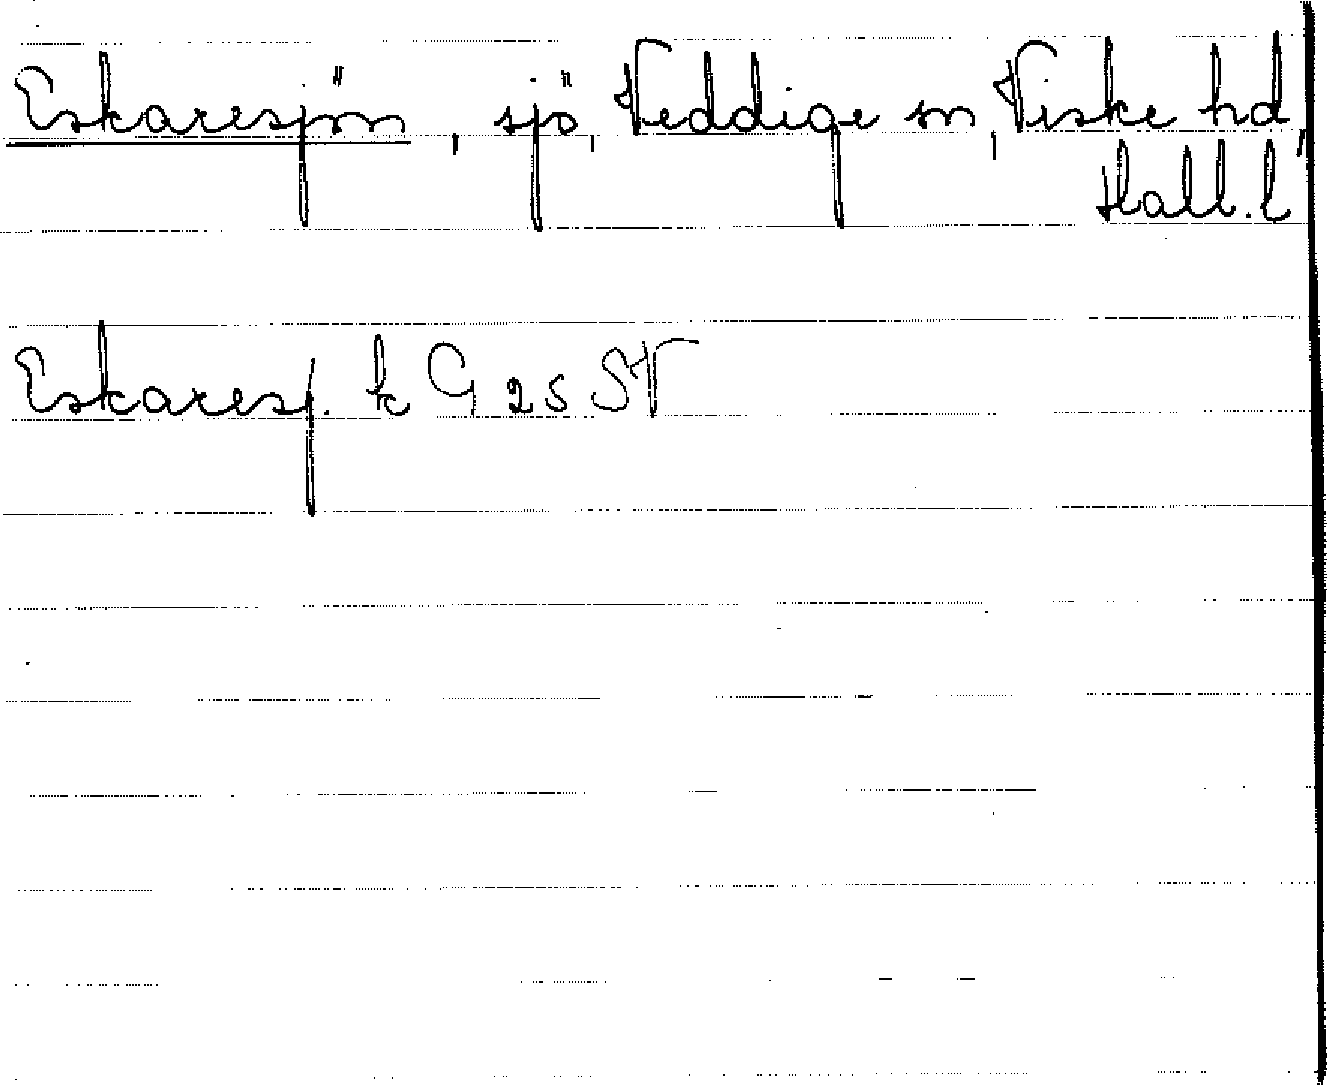 Eskaresjön, sjö, Veddige sn, Viske hd,
Hall. l
Eskaresj. k G 25 SV